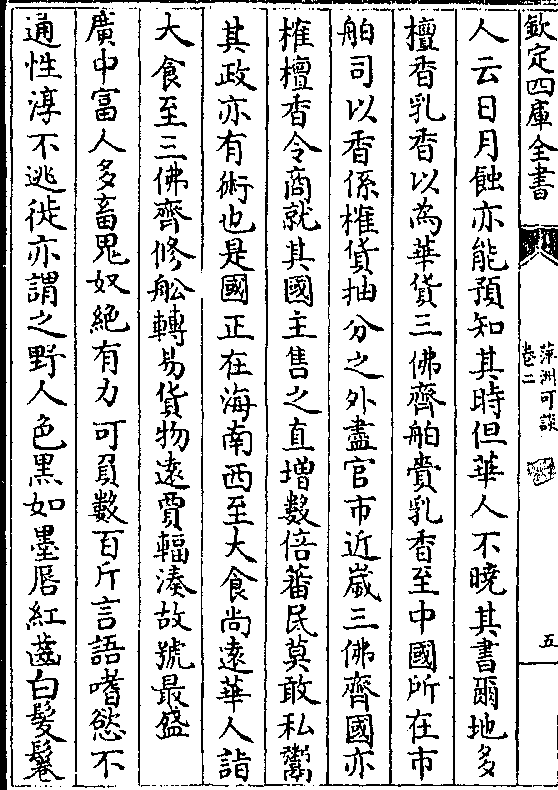 欽定四庫全書
萍洲可談
卷二
五
人云日月蝕亦能預知其時但華人不曉其書爾地多
檀香乳香以為華貨三佛齊舶賫乳香至中國所在市
舶司以香係榷貨抽分之外盡官市近歲三佛齊國亦
榷檀香令商就其國主售之直增數倍蕃民莫敢私鬻
其政亦有術也是國正在海南西至大食尚遠華人詣
大食至三佛齊修船轉易貨物遠賈輻湊故號最盛
廣中富人多畜鬼奴絕有力可負數百斤言語嗜慾不
通性淳不逃徙亦謂之野人色黑如墨唇紅齒白髮鬈